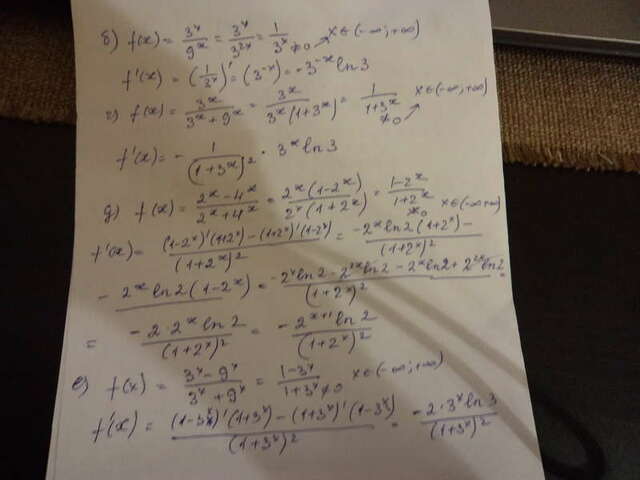 б) f(x) = 3^x/9^x = 3^x/3^{2x} = 1/3^x ≠0 → x∈(-∞;+∞)
f'(x) = (1/3^x)' = (3^{-x})' = -3^{-x} ln3
г) f(x) = 3^x/(3^x+9^x) = 3^x/(3^x(1+3^x)) = 1/(1+3^x) ≠0 → x∈(-∞;+∞)
f'(x) = - 1/(1+3^x)^2 · 3^x ln3
д) f(x) = (2^x-4^x)/(2^x+4^x) = (2^x(1-2^x))/(2^x(1+2^x)) = (1-2^x)/(1+2^x) ≠0 x∈(-∞;+∞)
f'(x) = ((1-2^x)'(1+2^x)-(1+2^x)'(1-2^x))/(1+2^x)^2 = (-2^x ln2(1+2^x)-)/(1+2^x)^2
- 2^x ln2(1-2^x) = (-2^x ln2-2^{2x} ln2-2^x ln2+2^{2x} ln2)/(1+2^x)^2 =
= (-2·2^x ln2)/(1+2^x)^2 = (-2^{x+1} ln2)/(1+2^x)^2
е) f(x) = (3^x-9^x)/(3^x+9^x) = (1-3^x)/(1+3^x) ≠0 x∈(-∞;+∞)
f'(x) = ((1-3^x)'(1+3^x)-(1+3^x)'(1-3^x))/(1+3^x)^2 = (-2·3^x ln3)/(1+3^x)^2